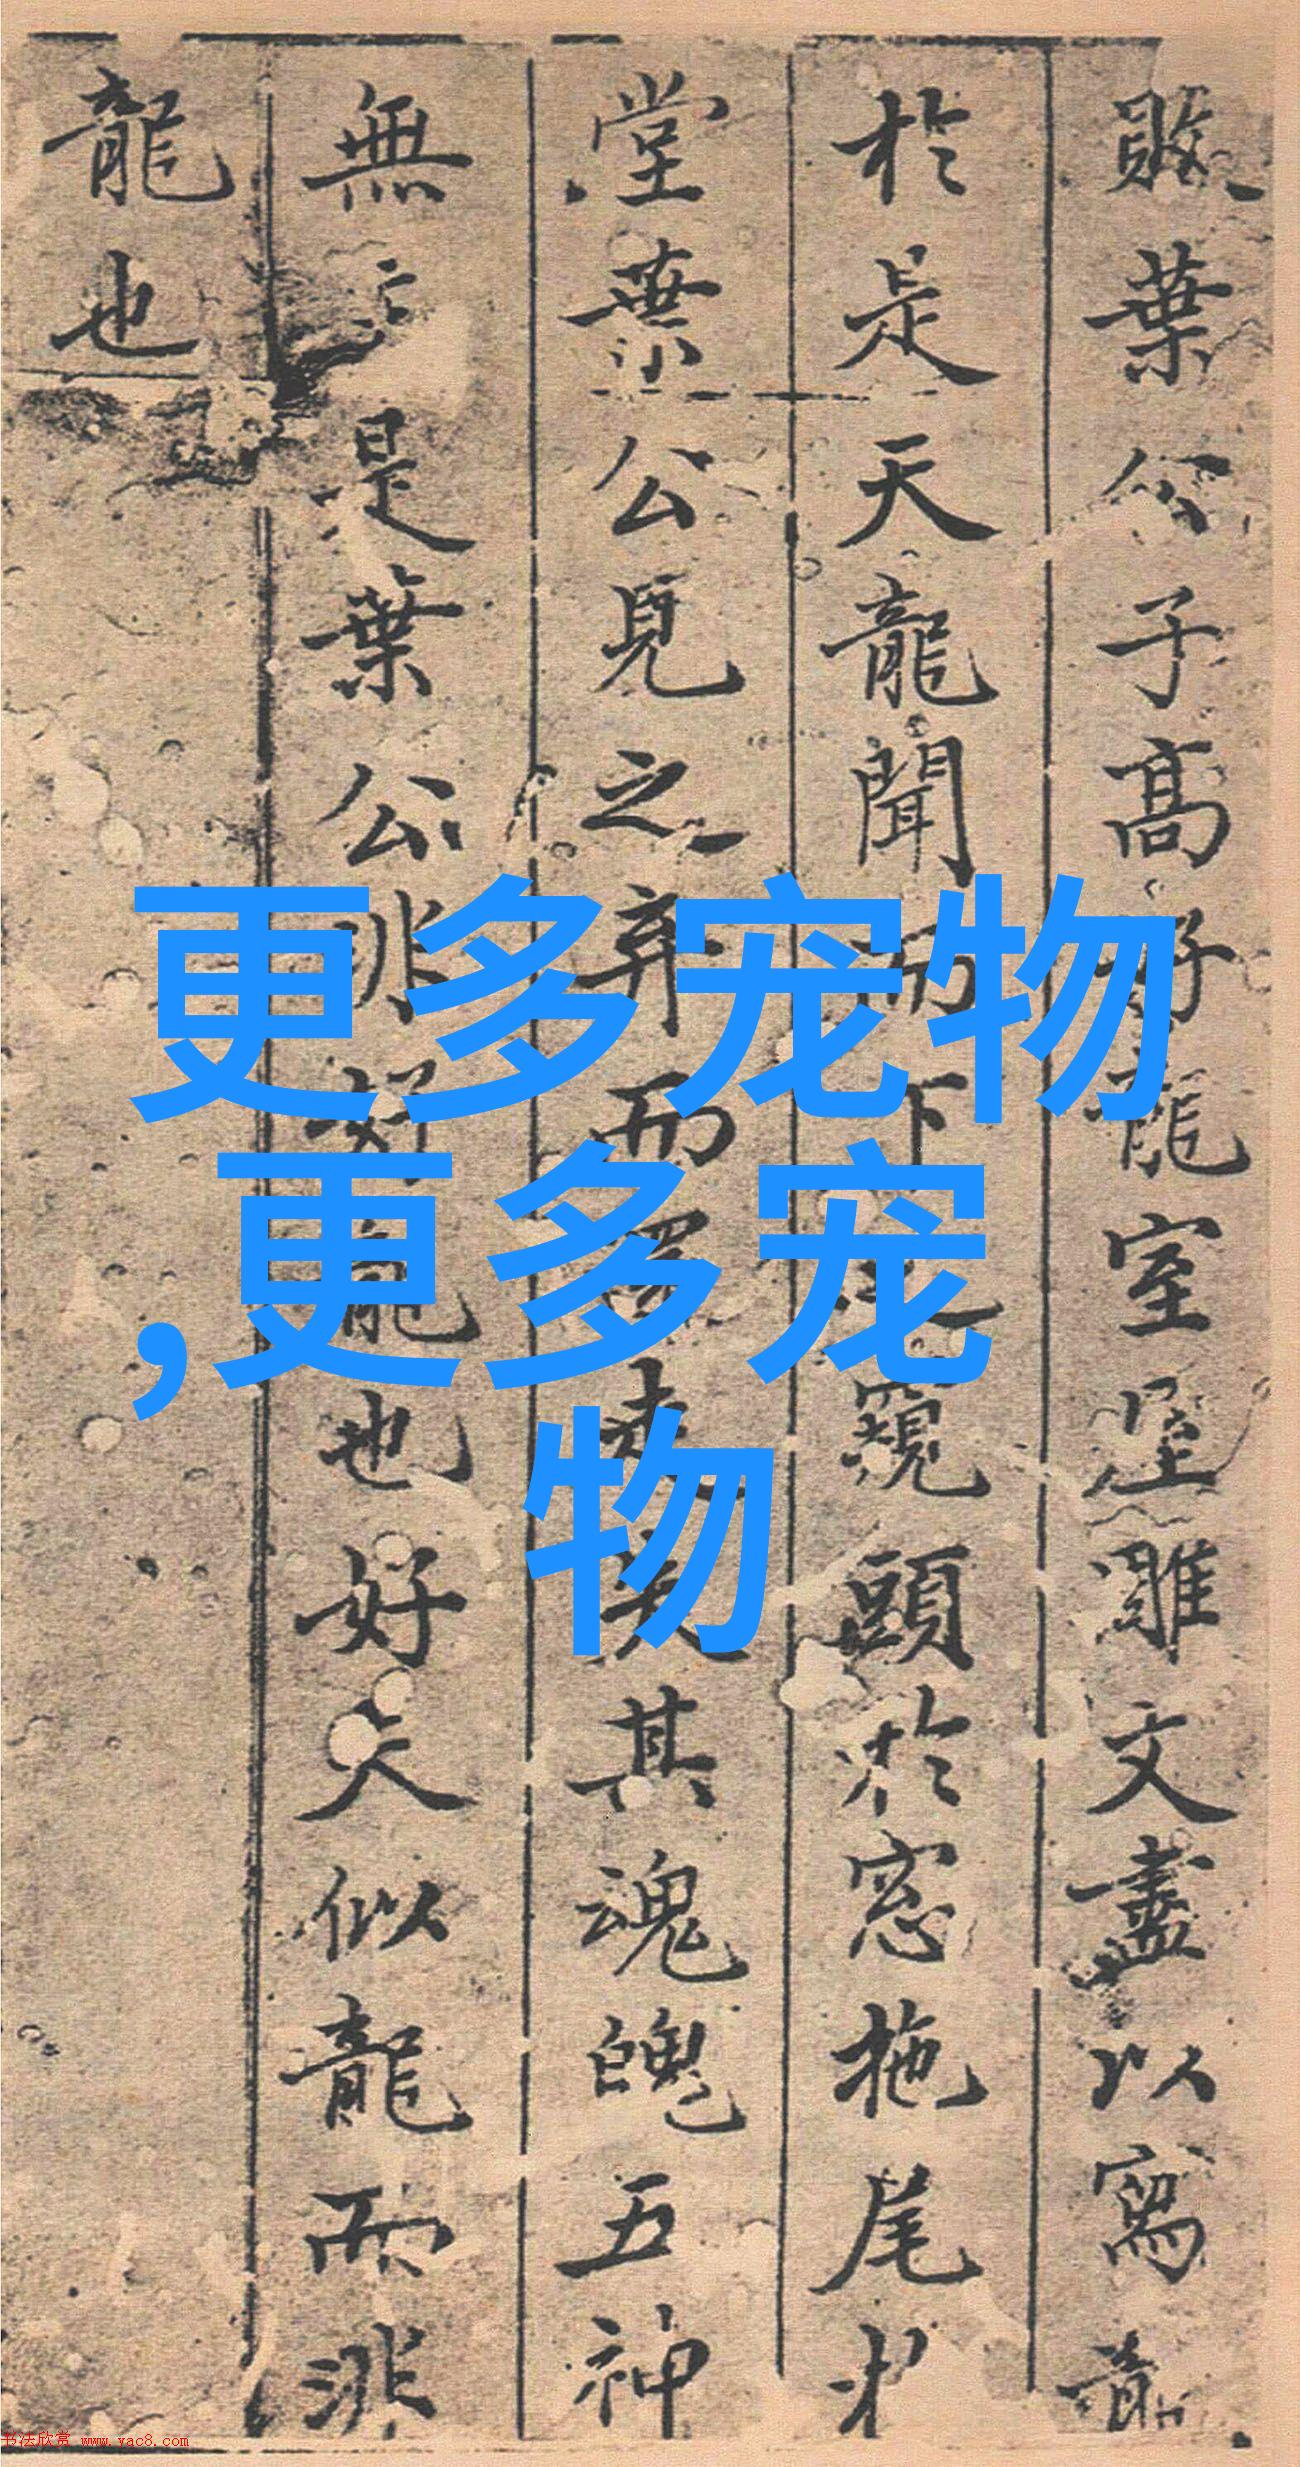 敗葉公子高好龍室屋雕文盡以寫龍
於是天龍聞而下之窺頭於窓拖尾
堂葉公見之弃而還走失其魂魄五神
無主是葉公非好龍也好夫似龍而非
龍也
更多宠物
,更多宠
物
书法欣赏 www.yac8.com